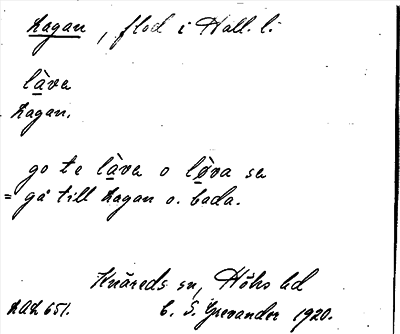 Lagan, flod i Hall. l:
làva
Lagan.
go te làva o lø̀va sa
= gå till Lagan o. bada.
Knäreds sn, Höks hd
LAL 651. C. S. 1920.